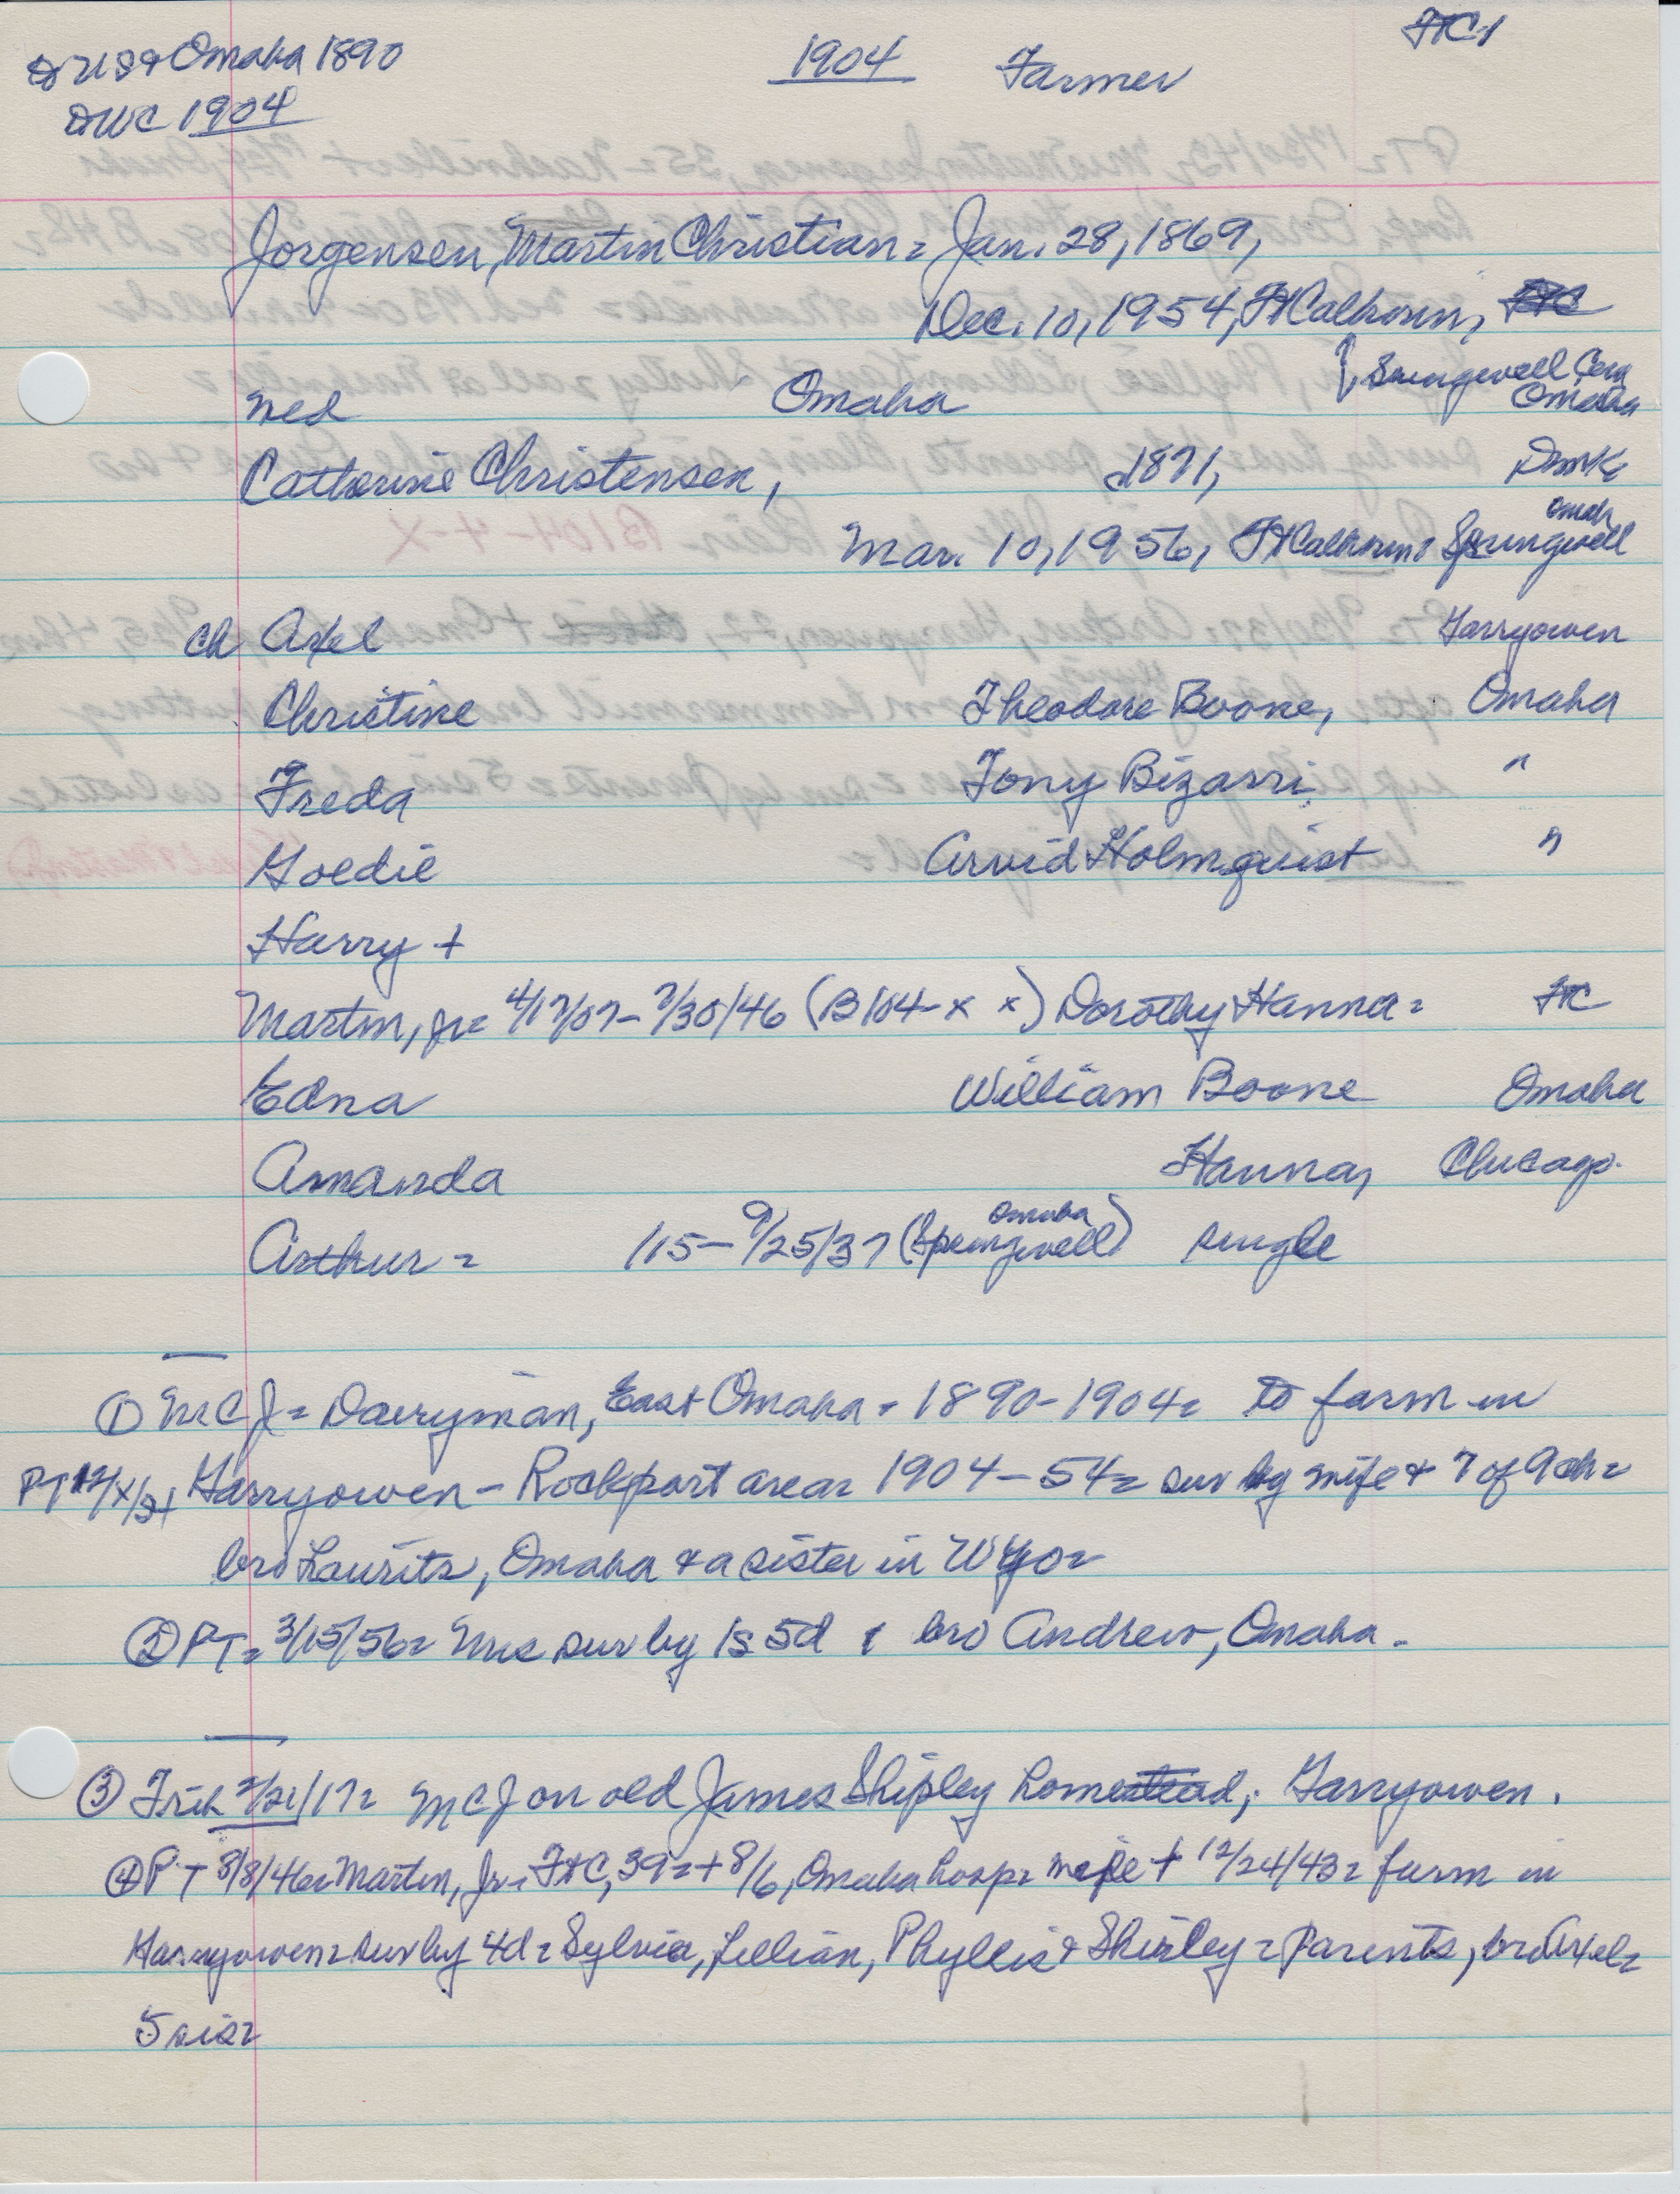 to US & Omaha 1890
to WC 1904
1904 Farmer
FtC1
Jorgensen, Martin Christian = Jan. 28, 1869,
Dec. 10, 1954, Ft Calhoun, FtC
} Springwell Cem
Omaha
med Omaha
Catherine Christensen, 1871, DmK
Mar. 10, 1956, Ft Calhoun = Springwell Omah
ch Axel Garryowen
Christine Theodore Boone, Omaha
Freda Tony Bizarri, "
Goldie Arvid Holmquist "
Harry +
Martin, Jr = 4/17/07 - 7/30/46 (B104-x x) Dorothy Hanna = FtC
Edna William Boone Omaha
Amanda Hanna, Chicago.
Arthur = 1/15 - 9/25/37 (Springwell Omaha) single
① MCJ = Dairyman, East Omaha = 1890-1904 = to farm in
PT 12/x/54 Garryowen - Rockport area = 1904-54 = sur by wife + 7 of 9 ch =
bro Laurits, Omaha & a sister in Wyo =
② PT = 3/15/56 = Mrs sur by 1s 5d & bro Andrew, Omaha.
③ Trib 2/21/17 = MCJ on old James Shipley homestead; Garryowen.
④ PT 8/8/46 = Martin, Jr = FtC, 39 = + 8/6, Omaha hosp = wife + 12/24/43 = farm in
Garryowen = sur by 4d = Sylvia, Lillian, Phyllis & Shirley = parents, bro Axel =
5 sis =